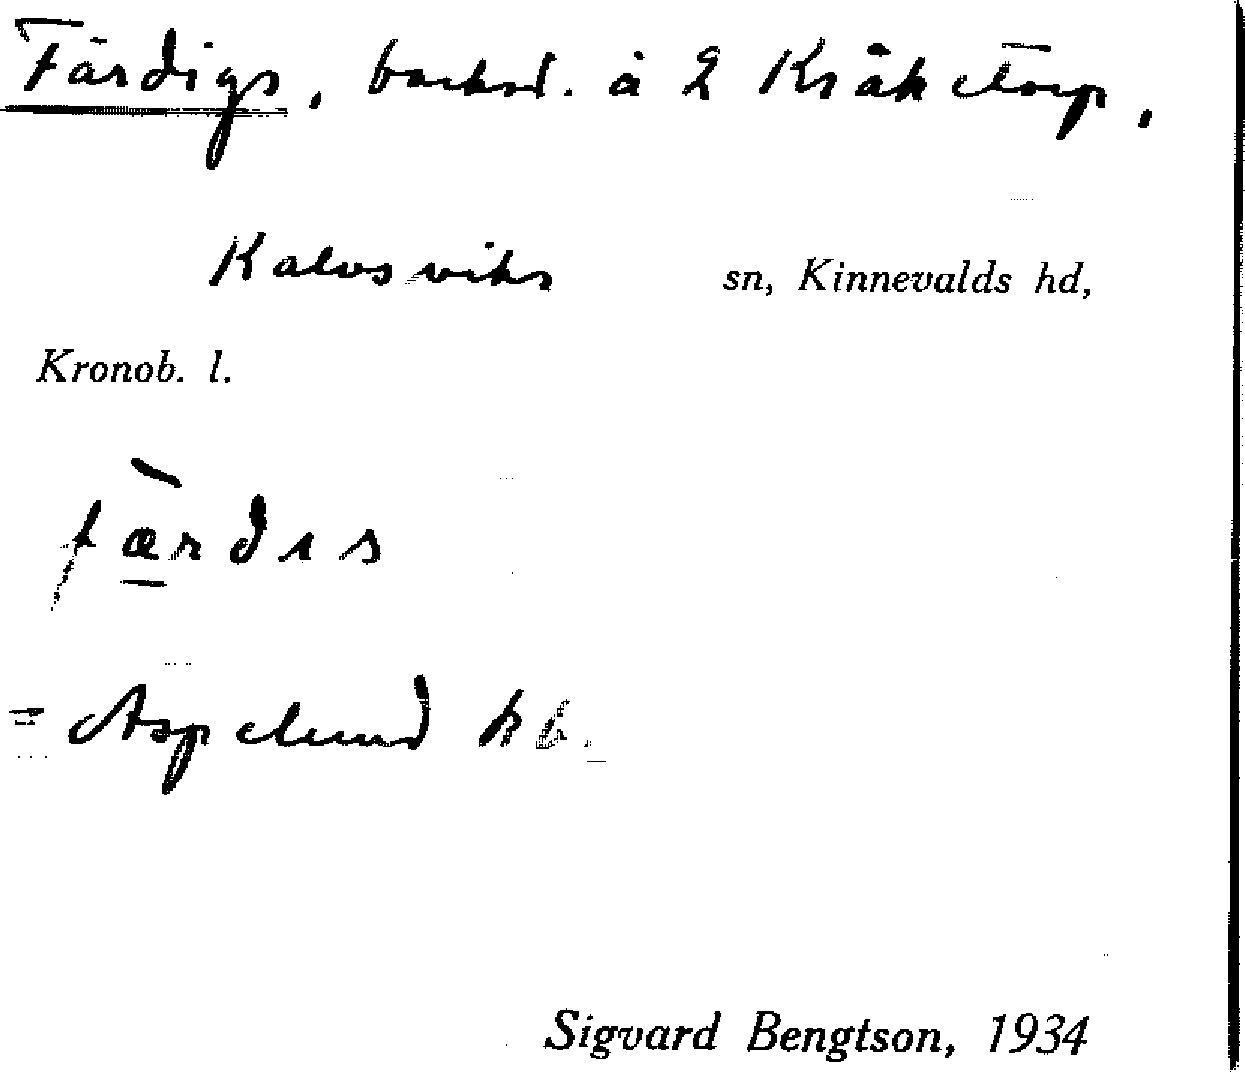 Färdigs, backst. å 2 Kråketorp,
Kalvsviks sn, Kinnevalds hd,
Kronob. l.
fæ̀rdıs
= Aspelund kb.
Sigvard Bengtson, 1934